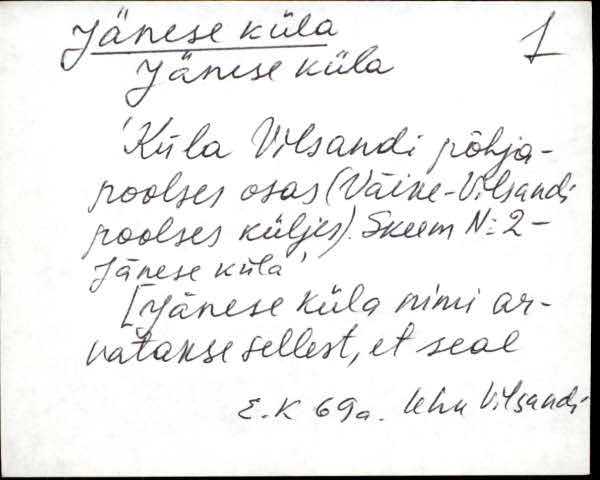 Jänese küla 1
Jänese küla
'Küla Vilsandi põhja-
poolses osas (Väike-Vilsandi
poolses küljes). Skeem N: 2 -
Jänese küla'
[Jänese küla nimi ar-
vatakse sellest, et seal
E.K 69a. Kihu Vilsandi